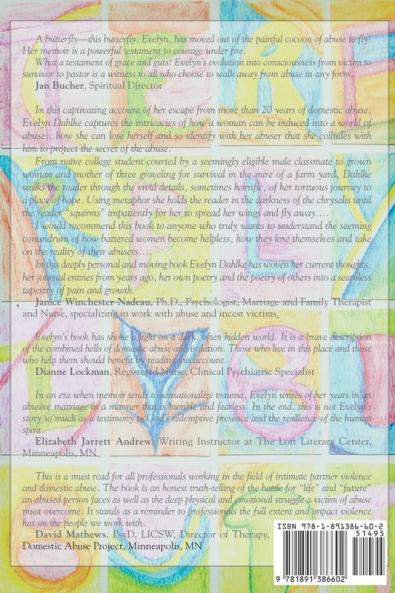 A butterfly—this butterfly, Evelyn, has moved out of the painful cocoon of abuse to fly!
Her memoir is a powerful testament to courage under fire.
What a testament of grace and guts! Evelyn's evolution into consciousness from victim to
survivor to pastor is a witness to all who choose to walk away from abuse in any form.
Jan Bucher, Spiritual Director
In this captivating account of her escape from more than 20 years of domestic abuse,
Evelyn Dahlke captures the intricacies of how a woman can be induced into a world of
abuse...how she can lose herself and so identify with her abuser that she colludes with
him to protect the secret of the abuse.
From naive college student courted by a seemingly eligible male classmate to grown
woman and mother of three groveling for survival in the manure of a farm yard, Dahlke
takes the reader through the vivid details, sometimes horrific, of her tortuous journey to
place of hope. Using metaphor she holds the reader in the darkness of the chrysalis until
the reader "squirms" impatiently for her to spread her wings and fly away....
I would recommend this book to anyone who truly wants to understand the seeming
conundrum of how battered women become helpless, how they lose themselves and take
on the reality of their abusers....
In this deeply personal and moving book Evelyn Dahlke has woven her current thoughts,
her journal entries from years ago, her own poetry and the poetry of others into a seamless
tapestry of pain and growth.
Janice Winchester Nadeau, Ph.D., Psychologist, Marriage and Family Therapist
and Nurse, specializing in work with abuse and incest victims.
Evelyn's book has shone a light on a dark, often hidden world. It is a brave description
of the combined hells of domestic abuse and isolation. Those who live in this place and those
who help them should benefit by reading this account.
Dianne Lockman, Registered Nurse, Clinical Psychiatric Specialist
In an era when memoir tends to sensationalize trauma, Evelyn writes of her years in an
abusive marriage in a manner that is humble and fearless. In the end, this is not Evelyn's
story so much as testimony to the redemptive presence and the resilience of the human
spirit.
Elizabeth Jarrett Andrew, Writing Instructor at The Loft Literary Center,
Minneapolis, MN
This is a must read for all professionals working in the field of intimate partner violence
and domestic abuse. The book is an honest truth-telling of the battle for "life" and "future"
an abused person faces as well as the deep physical and emotional struggle a victim of abuse
must overcome. It stands as a reminder to professionals the full extent and impact violence
has on the people we work with.
David Mathews, PsyD, LICSW, Director of Therapy,
Domestic Abuse Project, Minneapolis, MN
ISBN 978-1-891386-60-2
51495
9 781891 386602